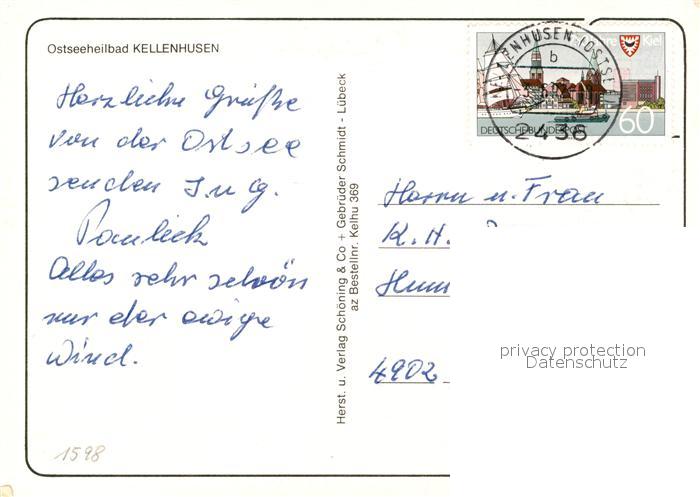 Ostseeheilbad KELLENHUSEN
Herzliche Grüße
von der Ostsee
senden I. u. G.
Paulick
Alles sehr schön
nur der ewige
Wind.
1598
Herst. u. Verlag Schöning & Co + Gebrüder Schmidt - Lübeck
az Bestellnr. Kelhu 369
Kiel
KELLENHUSEN (OSTSEE)
b
2436
DEUTSCHE BUNDESPOST
60
Herrn u. Frau
K. H.
4902
privacy protection
Datenschutz